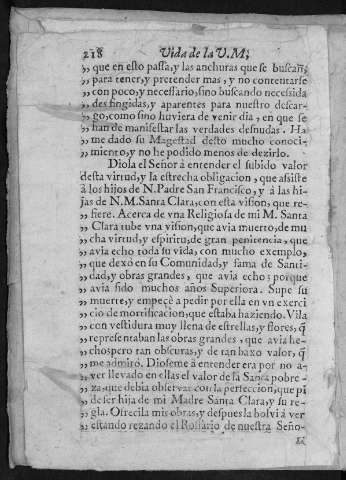 218 Vida de la V.M;
,, que en esto passa, y las anchuras que se buscan,
,, para tener, y pretender mas, y no contentarse
,, con poco, y necessario, sino buscando necessida
,, des fingidas, y aparentes para nuestro descar-
,, go, como sino huviera de venir dia, en que se
,, han de manifestar las verdades desnudas. Ha
,, me dado su Magestad desto mucho conoci-
,, miento, y no he podido menos de dezirlo.
Diola el Señor à entender el subido valor
desta virtud, y la estrecha obligacion, que assiste
à los hijos de N. Padre San Francisco, y à las hi-
jas de N. M. Santa Clara, con esta vision, que re-
,, fiere. Acerca de vna Religiosa de mi M. Santa
,, Clara tube vna vision, que avia muerto, de mu
,, cha virtud, y espiritu, de gran penitencia, que
,, avia echo toda su vida, con mucho exemplo,
,, que dexò en su Comunidad, y fama de Santi-
,, dad, y obras grandes, que avia echo; porque
,, avia sido muchos años Superiora. Supe su
,, muerte, y empeçè a pedir por ella en vn exerci
,, cio de mortificacion, que estaba haziendo. Vila
,, con vestidura muy llena de estrellas, y flores, q̃
,, representaban las obras grandes, que avia he-
,, cho; pero tan obscuras, y de tan baxo valor, q̃
,, me admirò. Dioseme à entender era por no a-
,, ver llevado en ellas el valor de la Santa pobre-
,, za, que debia observar con la perfeccion, que pi
,, de ser hija de mi Madre Santa Clara, y su re-
,, gla. Ofrecila mis obras, y despues la bolvi à ver
,, estando rezando el Rossario de nuestra Seño-